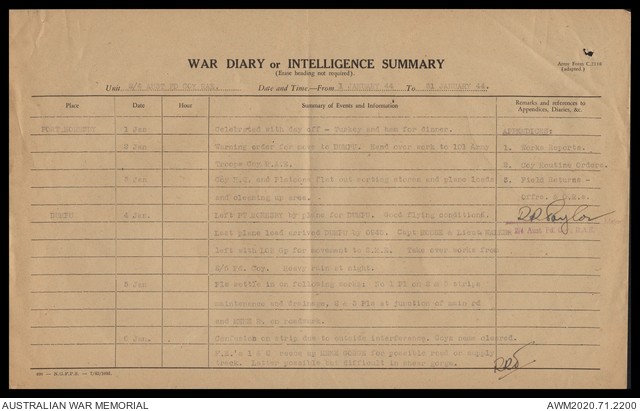 WAR DIARY or INTELLIGENCE SUMMARY
(Erase heading not required).
Army Form C.2118
(adapted.)
Unit 2/4 FD COY RAE. Date and Time—From 1 JANUARY 44 To 31 JANUARY 44.
Place Date Hour Summary of Events and Information Remarks and references to Appendices, Diaries, &c.
PORT MORESBY 1 Jan Celebrated with day off - Turkey and ham for dinner. APPENDICES:
2 Jan Warning order for move to DUMPU. Hand over work to 1 Army 1. Works Reports.
Troops Coy R.A.E. 2. Coy Routine Orders.
3 Jan Coy H.Q. and Platoons flat out sorting stores and plane loads 3. Field Returns -
and cleaning up area. Offrs, &
DUMPU 4 Jan Left Pt MORESBY by plane for DUMPU. Good flying conditions.
Last plane load arrived DUMPU by Capt & Lieut
left with for movement to Take over works from
Fd. Coy. Heavy rain at night.
5 Jan Pls settle in on following works: No 1 Pl on strips
maintenance and drainage, 2 & 3 Pls at junction of main rd
and R. on roadwork.
6 Jan. Confusion on strip due to outside interference. Coys name cleared.
for possible road or supply
track. Latter possible but difficult in sheer gorge.
AUSTRALIAN WAR MEMORIAL
AWM2020.71.2200